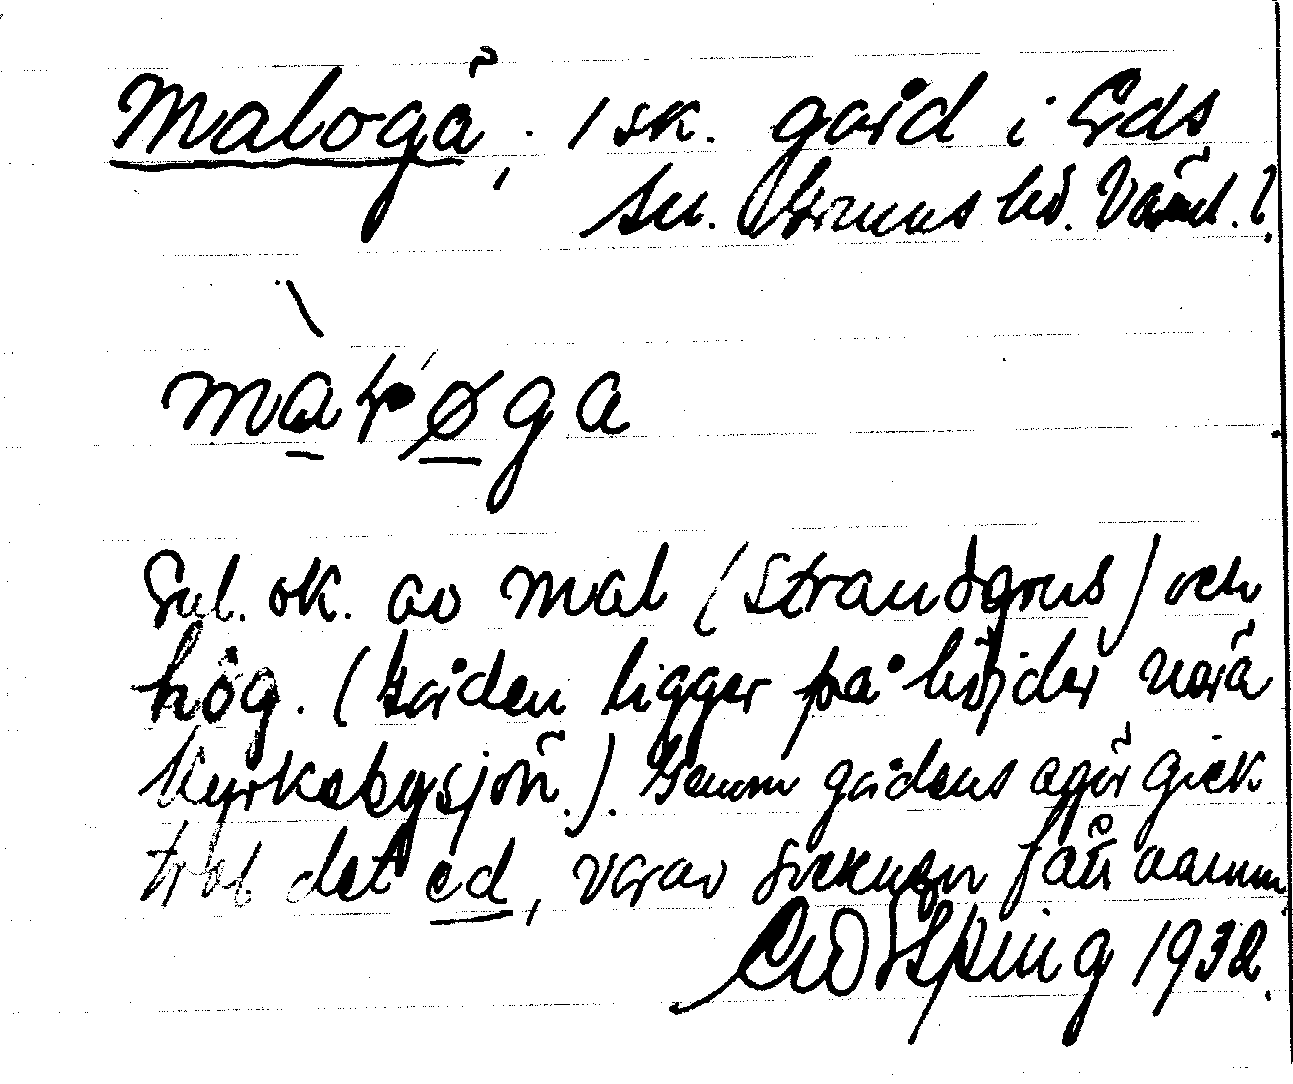 Malögä, 1 sk. gård i Eds
sn. Grums hd. Värml.
màɫøga
Enl. ok. av mal (strandgrus) och
hög. (Gården ligger på höjder nära
Kyrkebysjön.). Genom gårdens ägor gick
det ed, varav socknen fått namn
1932.